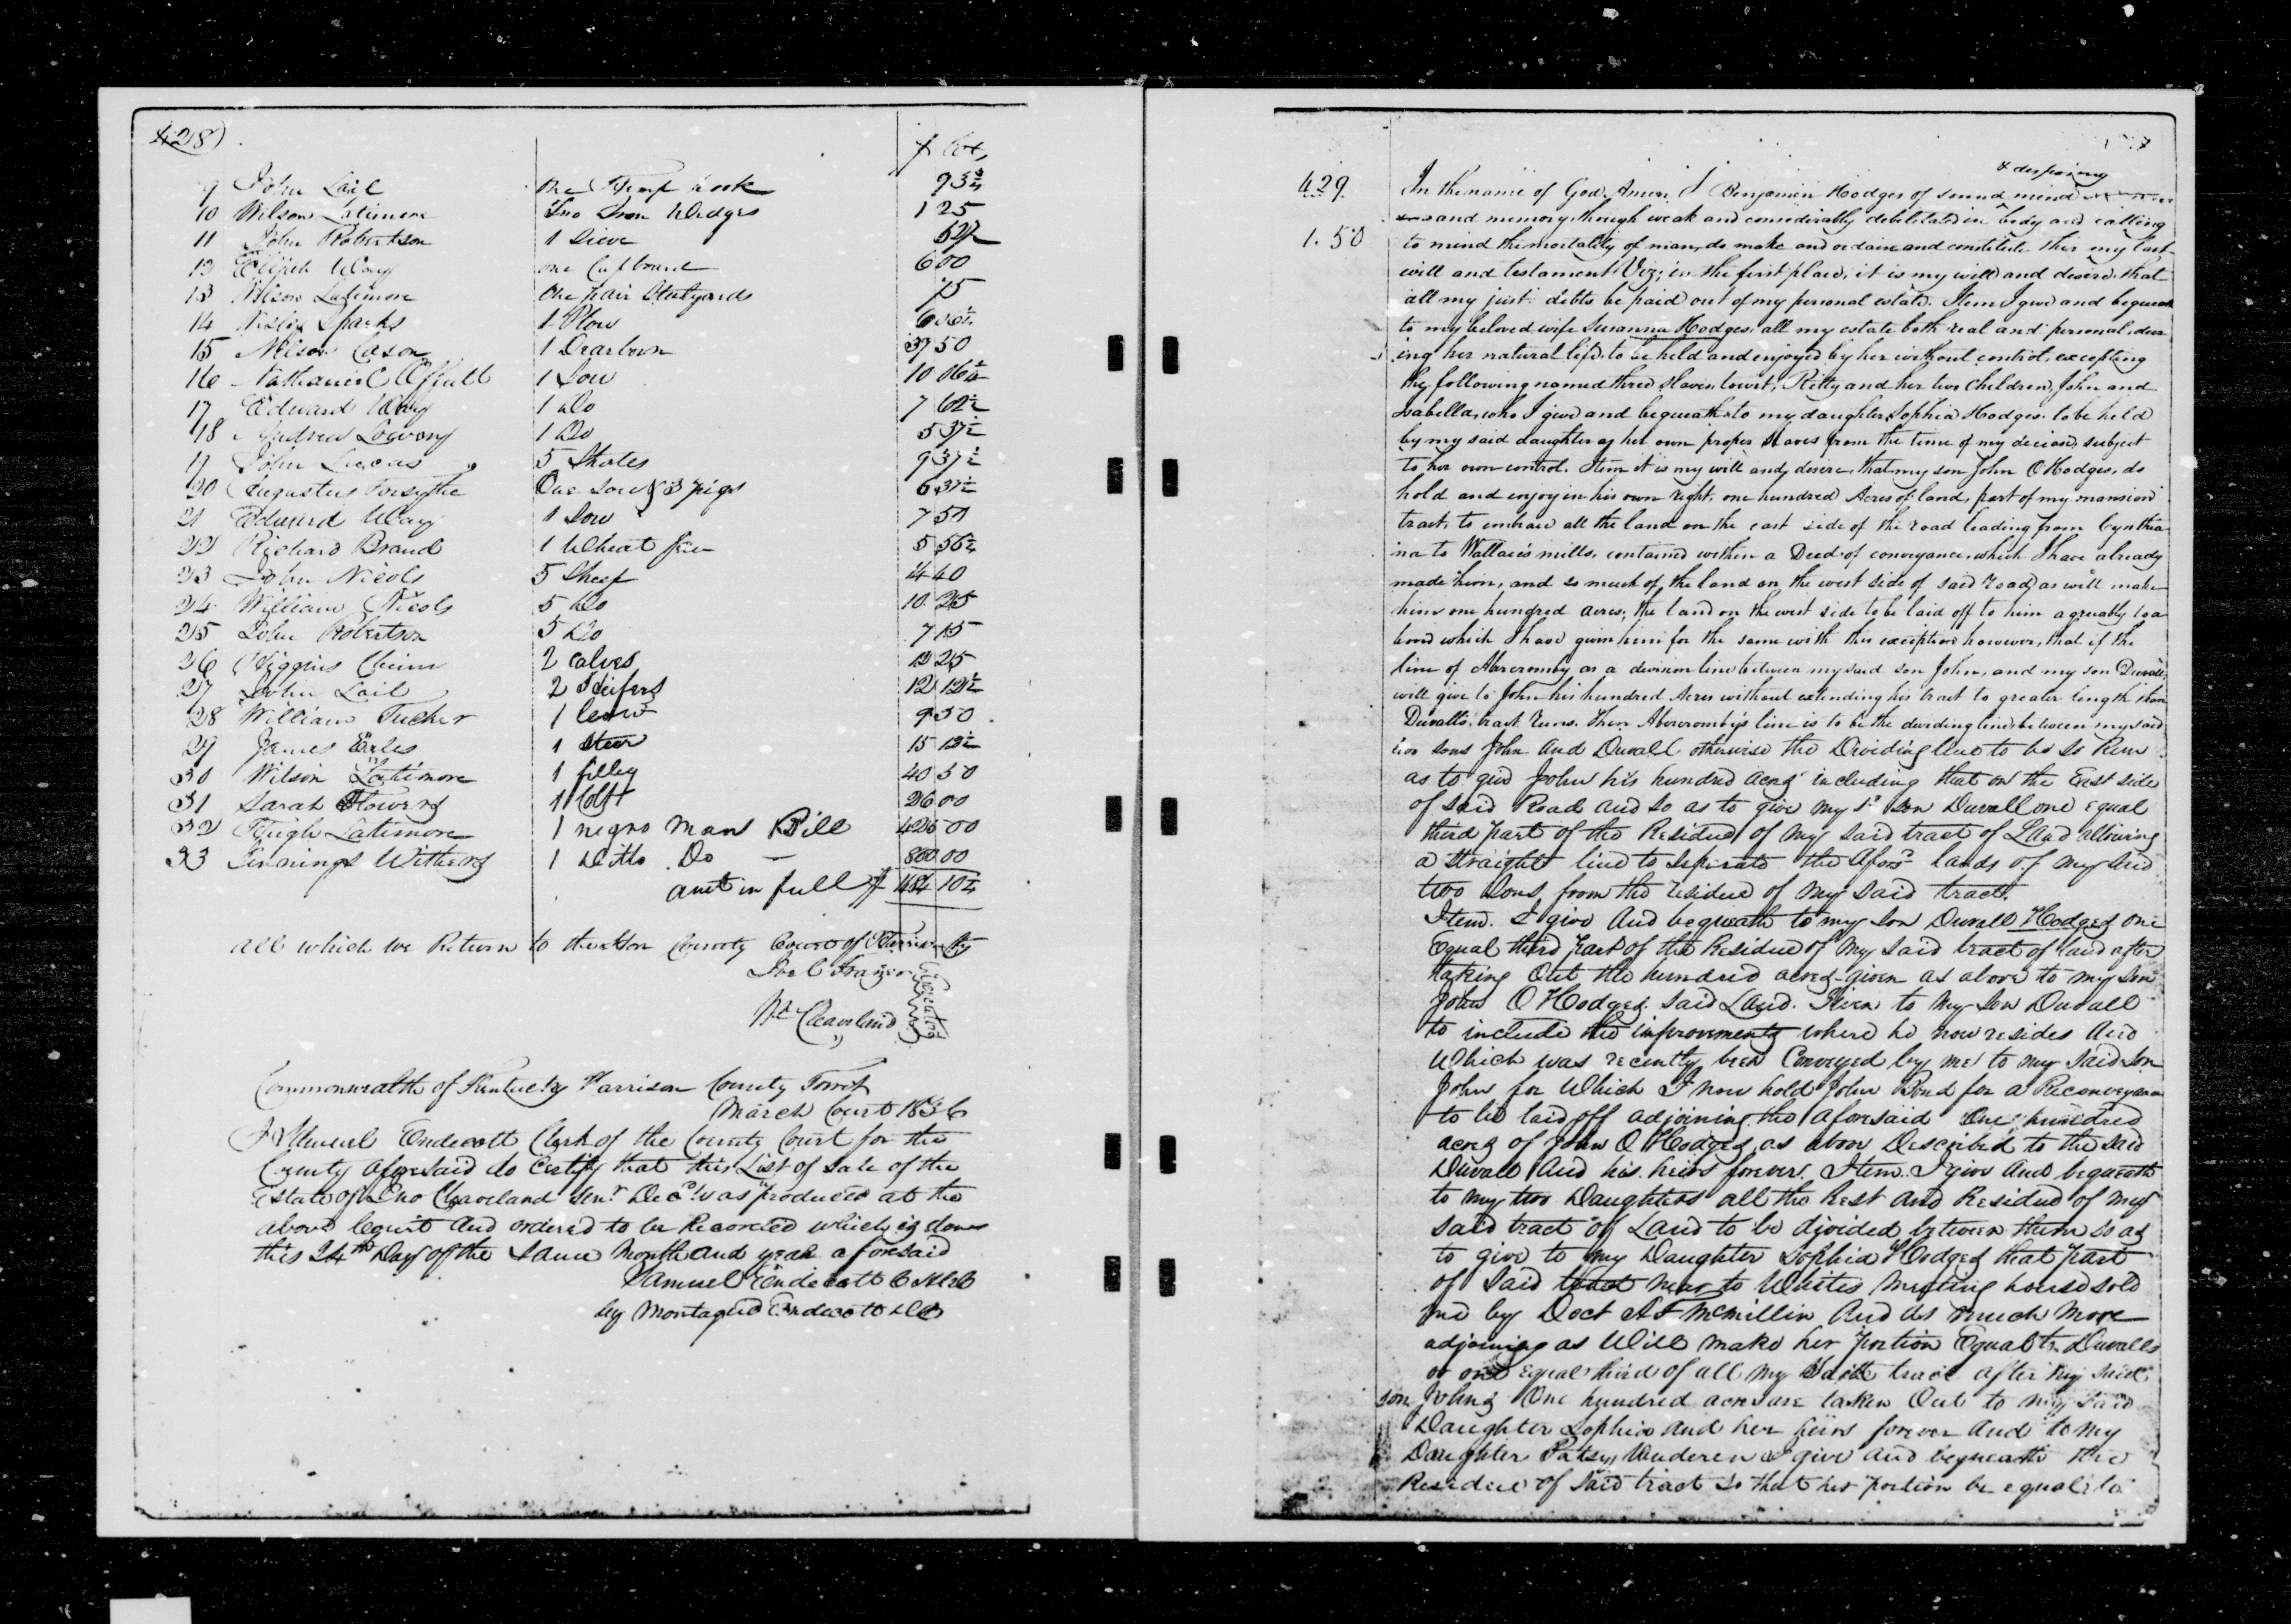 428)
$ Cts
9 John Lail one Hemp hook 93 3/4
10 Wilson Latimore Two Iron Wedges 1 25
11 John Robertson 1 Sieve 52 1/2
12 Elijah Way one Cupboard 6 00
13 Wilson Latimore One pair Stalyards 75
14 Wesley Sparks 1 Plow 6 06 1/4
15 Nelson Cason 1 Dearborn 39 50
16 Nathaniel Offutt 1 Sow 10 06 1/4
17 Edward Way 1 Do 7 62 1/2
18 Andrew 1 Do 5 37 1/2
19 John Lucas 5 Shotes 9 37 1/2
20 Augustus Forsythe One Sow & 3 pigs 6 37 1/2
21 Edward Way 1 Sow 7 50
22 Richard Brand 1 Wheat fan 5 56 1/4
23 John Nicols 5 Sheep 14 40
24 William Nicols 5 Do 10 25
25 John Robertson 5 Do 7 15
26 Higgins Chinn 2 calves 12 25
27 John Lail 2 Heifers 12 12 1/2
28 William Tucker 1 Cow 9 50
29 James Eales 1 Steer 15 12 1/2
30 Wilson Latimore 1 filley 40 50
31 Sarah Flowers 1 Colt 26 00
32 Hugh Latimore 1 negro Man Bill 426 00
33 Jinnings Withers 1 Ditto Do — 800 00
amt in full $
all which we Return to the Hon County Court of Harrison Cty
Joel Frazier
Wm Cleaveland
Executors
Commonwealth of Kentucky Harrison County Towit
March Court 1836
I Samuel Endecott Clerk of the County Court for the
County aforesaid do Certify that this List of Sale of the
Estate of Jno Cleaveland Senr Decd was produced at the
above Court and ordered to be Recorded which is done
this 24th Day of the Same Month and year aforesaid
Samuel Endecott C H C C
by Montague Endecott D C
429.
1.50
& desposing
In the name of God Amen, I Benjamin Hodges of sound mind
and memory, though weak and considerably debelitated in body and calling
to mind the mortality of man, do make and ordain and constitute this my last
will and testament Viz; in the first place, it is my will and desire that
all my just debts be paid out of my personal estate. Item I give and bequeath
to my beloved wife Susanna Hodges all my estate both real and personal, dur
ing her natural life, to be held and enjoyed by her without control, excepting
the following named three slaves, towit, Kitty and her two children, John and
Isabella, who I give and bequeath to my daughter Sophia Hodges. to be held
by my said daughter as her own proper slaves from the time of my decease, subject
to her own control. Item it is my will and desire, that my son John O Hodges, do
hold and enjoy in his own right, one hundred Acres of land, part of my mansion
tract, to embrace all the land on the east side of the road leading from Cynthia
na to Wallace's mills, contained within a Deed of conveyance, which I have already
made him, and so much of the land on the west side of said road, as will make
him one hundred acres; the land on the west side to be laid off to him agreeably to a
bond which I have given him for the same with this exception however, that if the
line of Abercromby as a devision line between my said son John, and my son Duvall
will give to John his hundred Acres without extending his tract to greater length than
Duvall's tract runs. Then Abercromby's line is to be the deviding line between my said
two sons John and Duvall otherwise the Dividing line to be so Run
as to give John his hundred acres including that on the East side
of said Road and so as to give my sd son Duvall one equal
third part of the Residue of my said tract of Land allowing
a straight line to seperate the aforsd lands of my said
two sons from the residue of my said tract.
Item. I give and bequeath to my son Duvall Hodges one
Equal third part of the Residue of my said tract of land after
taking out the hundred acres given as above to my son
John O Hodges. said Land. Given to my son Duvall
to include the improvements where he now resides and
which was recently been Conveyed by me to my said son
John for which I now hold John Bond for a Reconveyance
to be laid off adjoining the aforesaid One hundred
acres of John O Hodges as above Described to the said
Duvall and his heirs forever. Item. I give and bequeath
to my two Daughters all the Rest and Residue of my
said tract of Land to be divided between them so as
to give to my Daughter Sophia Hodges that part
of said tract near to Whites Meeting house sold
me by Doct A F McMillin and as much more
adjoining as will make her portion Equal to Duvalls
or one equal third of all my said tract after my said
son Johns One hundred acres are taken Out to my said
Daughter Sophia and her heirs forever and to my
Daughter Patsy Vanderen I give and bequeath the
Residue of said tract so that her portion be equal to